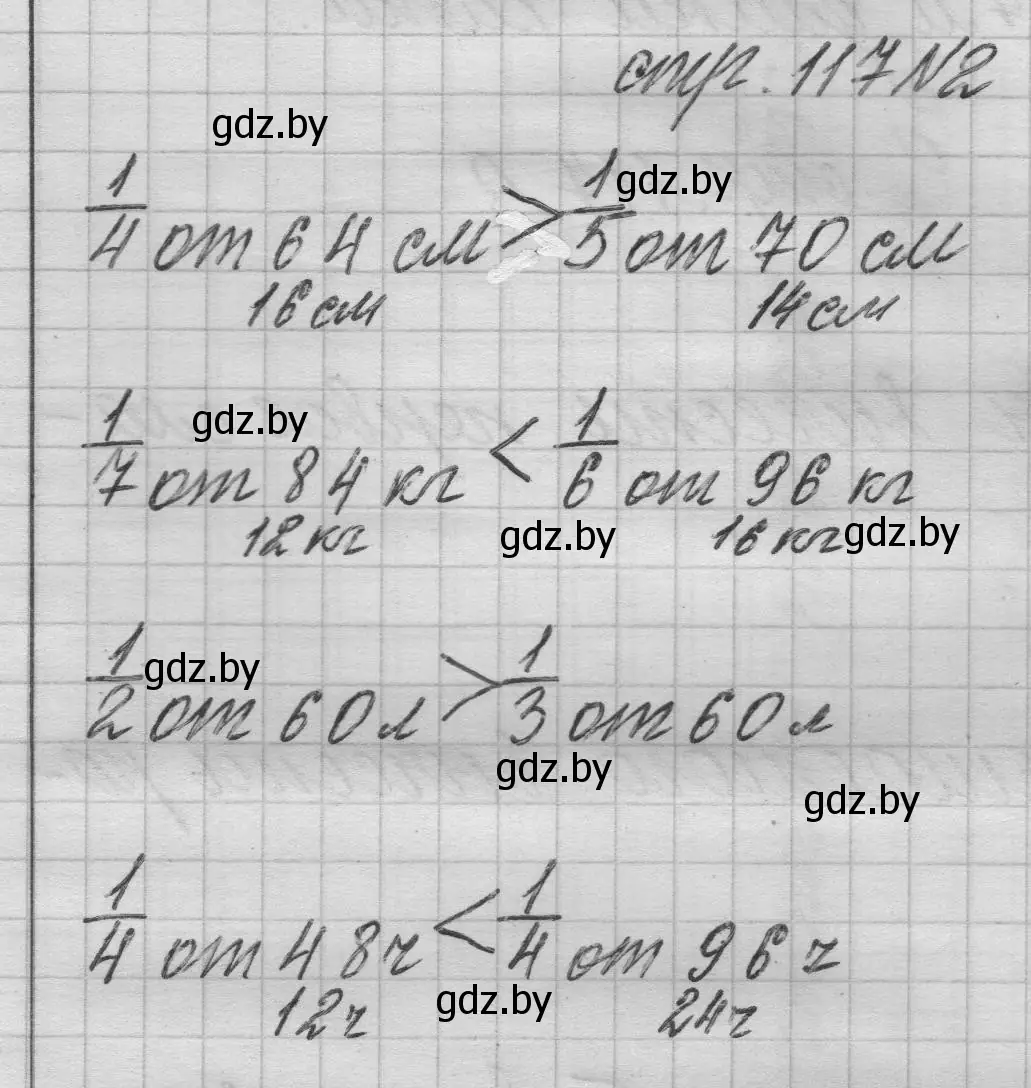 стр. 117 №2
gdz.by
1/4 от 64 см > 1/5 от 70 см
gdz.by
16 см 14 см
1/7 от 84 кг < 1/6 от 96 кг
gdz.by
12 кг gdz.by 16 кг gdz.by
1/2 от 60 л > 1/3 от 60 л
gdz.by
gdz.by
gdz.by
1/4 от 48 ч < 1/4 от 96 ч
12 ч gdz.by 24 ч